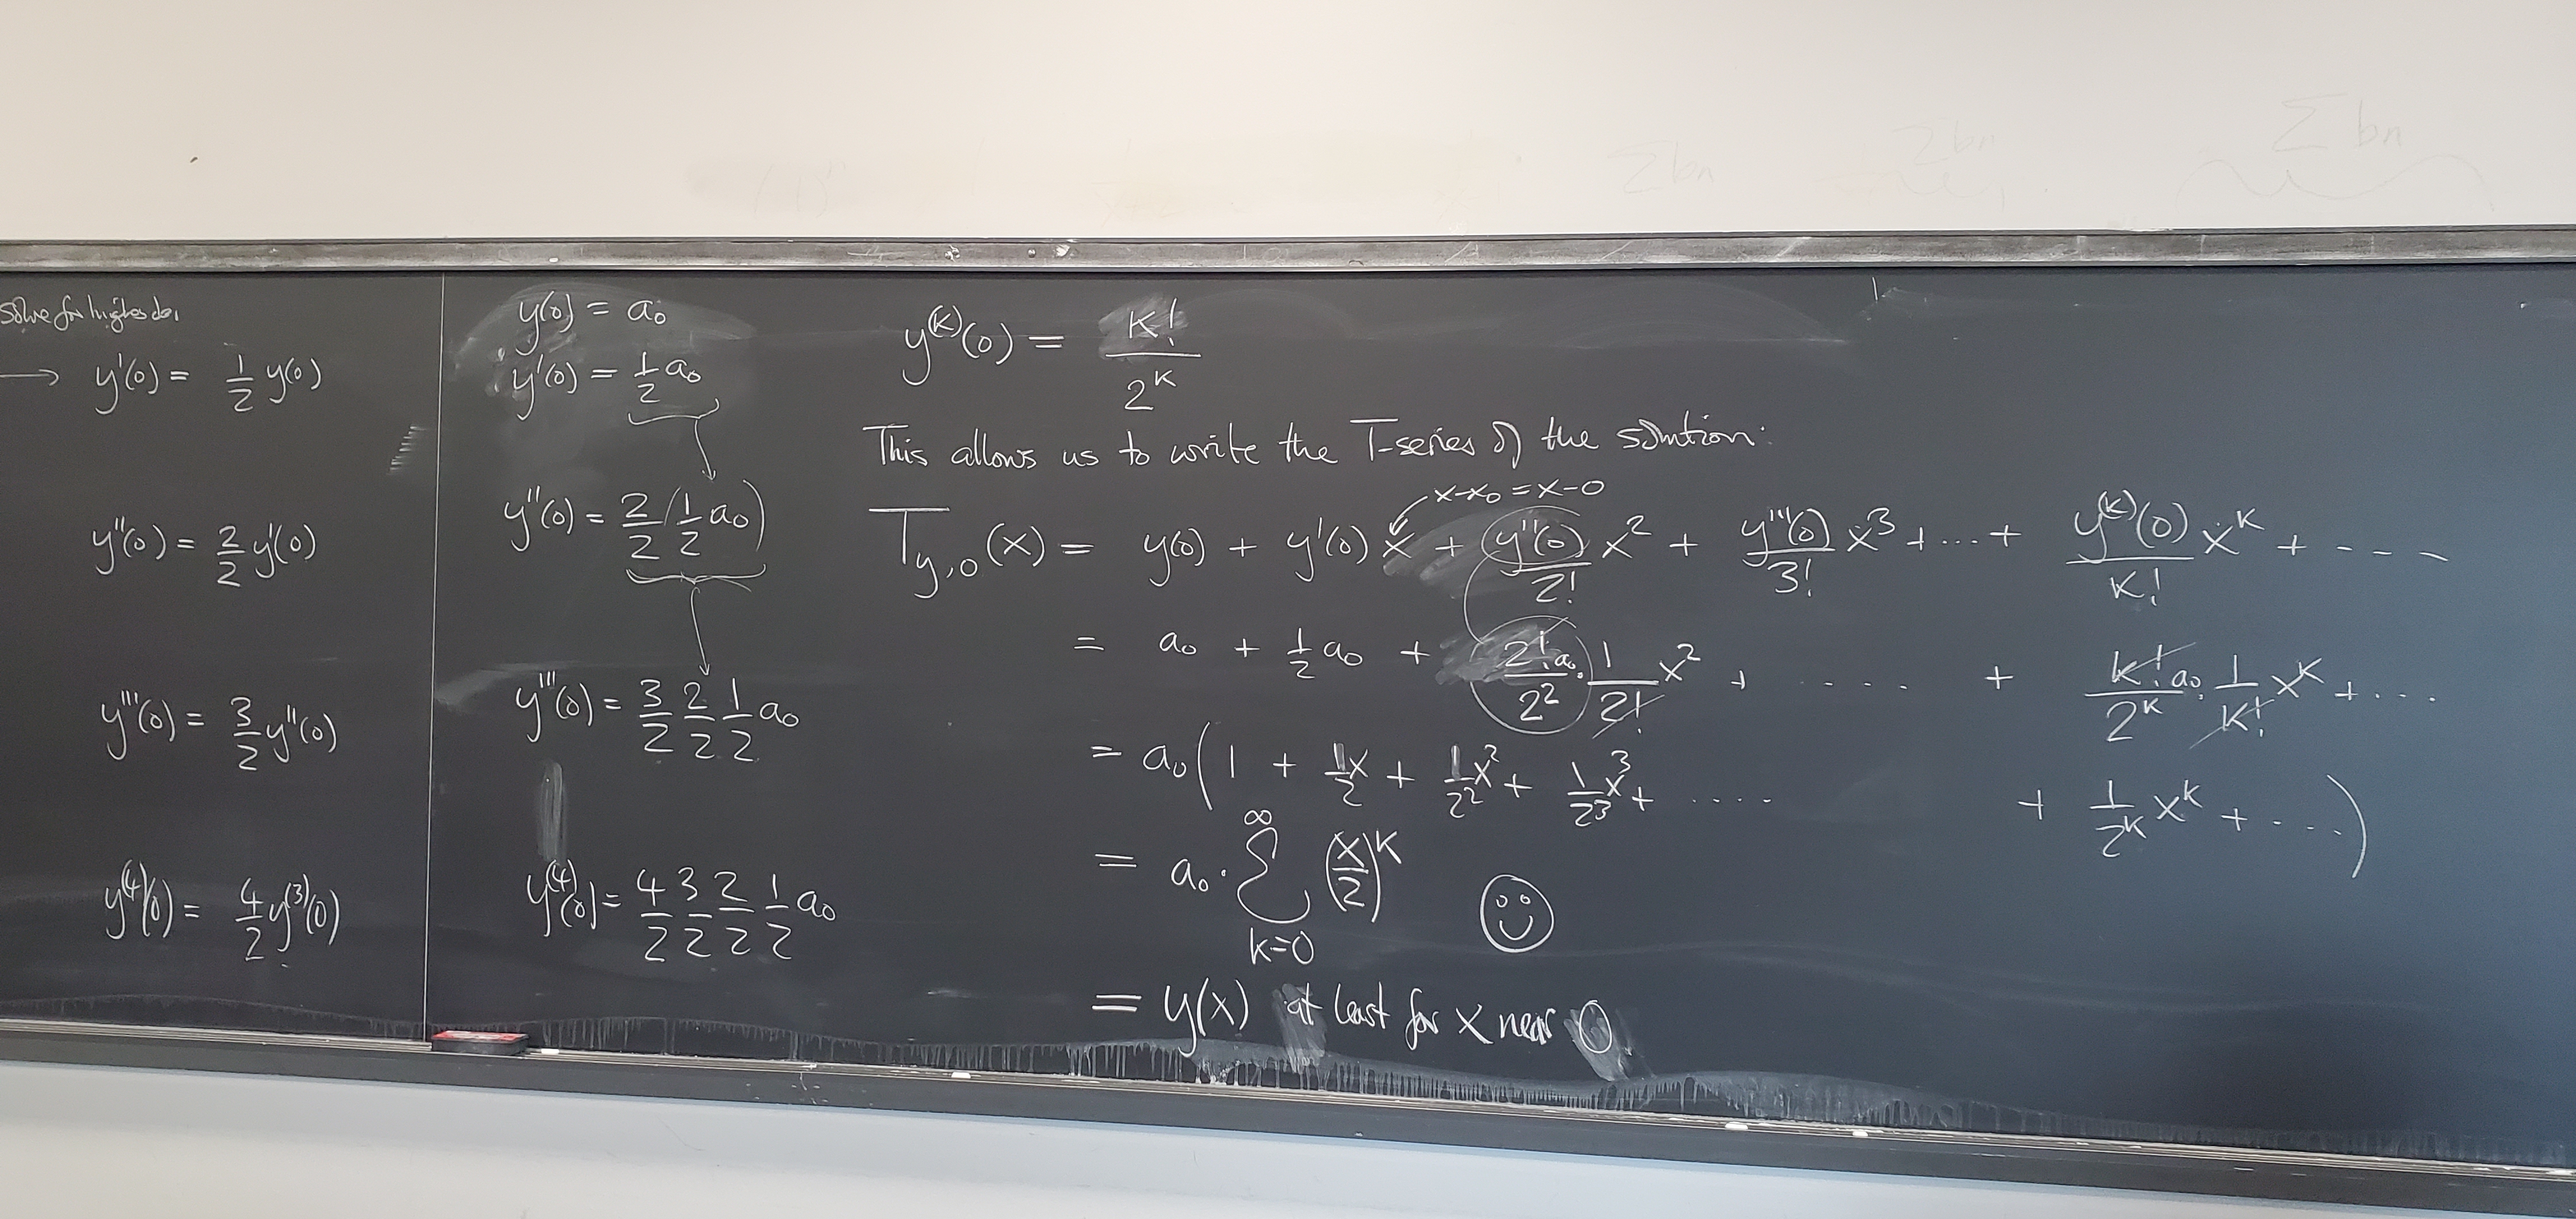 solve for higher der
→ y'(0) = 1/2 y(0)
y''(0) = 2/2 y'(0)
y'''(0) = 3/2 y''(0)
y^(4)(0) = 4/2 y^(3)(0)
y(0) = a₀
y'(0) = 1/2 a₀
y''(0) = 2/2 (1/2 a₀)
y'''(0) = 3/2 2/2 1/2 a₀
y^(4)(0) = 4/2 3/2 2/2 1/2 a₀
y^(k)(0) = k!/2^k
This allows us to write the T-series of the solution:
x-x₀ = x-0
T_y,0(x) = y(0) + y'(0) x + y''(0)/2! x² + y'''(0)/3! x³ + ... + y^(k)(0)/k! x^k + ----
= a₀ + 1/2 a₀ + 2! a₀/2² · 1/2! x² + .... + k! a₀/2^k · 1/k! x^k + ...
= a₀ (1 + 1/2 x + 1/2² x² + 1/2³ x³ + .... + 1/2^k x^k + ....)
= a₀ · ∑_{k=0}^∞ (x/2)^k
= y(x) at least for x near 0
∑bn
∑bn
∑bn